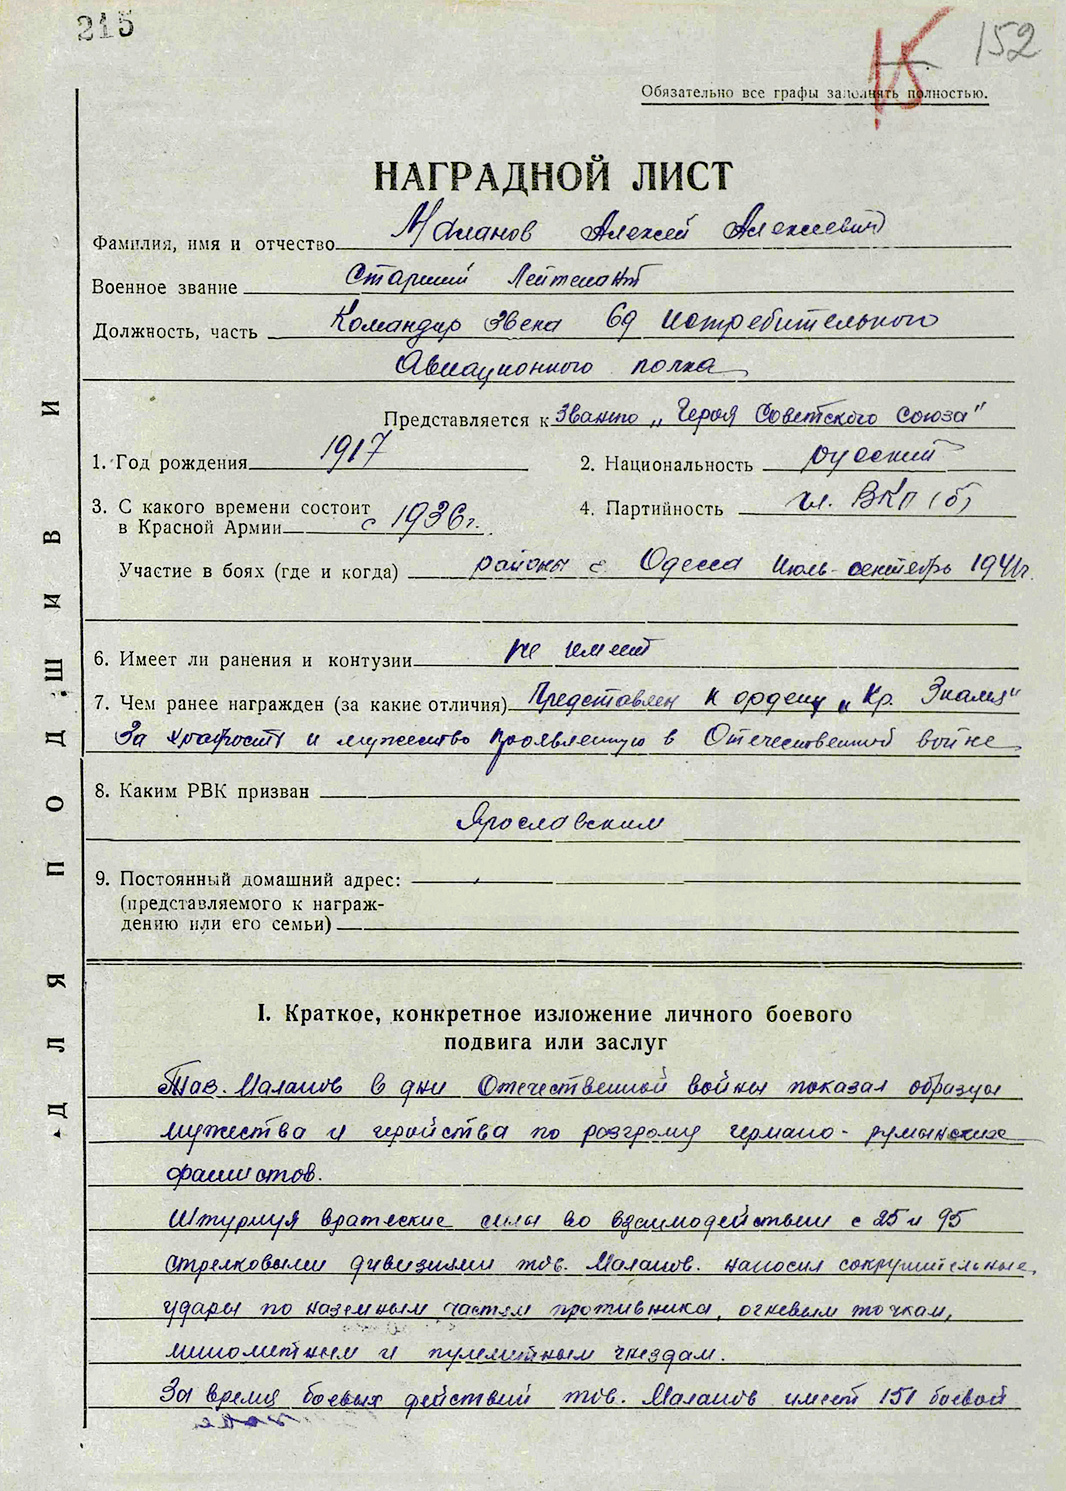 215
15 152
Обязательно все графы заполнять полностью.
НАГРАДНОЙ ЛИСТ
Фамилия, имя и отчество Маланов Алексей Алексеевич
Военное звание Старший Лейтенант
Должность, часть Командир звена 69 Истребительного
Авиационного полка
Представляется к званию „Героя Советского Союза"
1. Год рождения 1917 2. Национальность русский
3. С какого времени состоит
в Красной Армии с 1936г. 4. Партийность чл. ВКП(б)
Участие в боях (где и когда) районы г. Одесса Июль-сентябрь 1941г.
6. Имеет ли ранения и контузии не имеет
7. Чем ранее награжден (за какие отличия) Представлен к ордену „Кр. Знамя"
За храбрость и мужество проявленную в Отечественной войне
8. Каким РВК призван
Ярославским
9. Постоянный домашний адрес:
(представляемого к награж-
дению или его семьи)
I. Краткое, конкретное изложение личного боевого
подвига или заслуг
Тов. Маланов в дни Отечественной войны показал образцы
мужества и геройства по разгрому германо-румынских
фашистов.
Штурмуя вражеские силы во взаимодействии с 25 и 95
стрелковыми дивизиями тов. Маланов. наносил сокрушительные
удары по наземным частям противника, огневым точкам,
минометным и пулеметным гнездам.
За время боевых действий тов. Маланов имеет 151 боевой
ДЛЯ ПОДШИВКИ